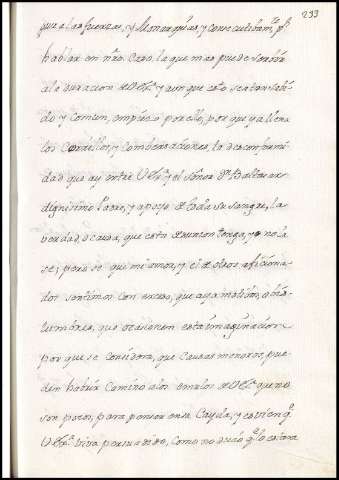 233
que a las fuerzas, y Monarquias, y consecutibamte. pa.
hablar en nro. Caso, la que mas puede serbir
a la duracion de VExa. y aunque esto sea tan sabi-
do y comun, empieco por ello, por que ya llena
los Corrillos, y Combersaciones, la desconformi-
dad que ay entre VExa. y el Señor Dn. Baltasar
dignisimo Padre, y apoyo de toda su sangre, la
verdad, o causa, que esta desunion tenga, yo no la
se; pero se que mi amor, y el de otros aficiona-
dos sentimos con exceso, que aya motibo, o bis-
lumbres, que ocasionen esta imaginacion
por que se considera, que causas menores, pue-
den habrir Camino a los emulos de VExa. que no
son pocos, para poner en la Cayda, y es bien qe.
VExa. viva persuadido, como no dudo qe. lo estara